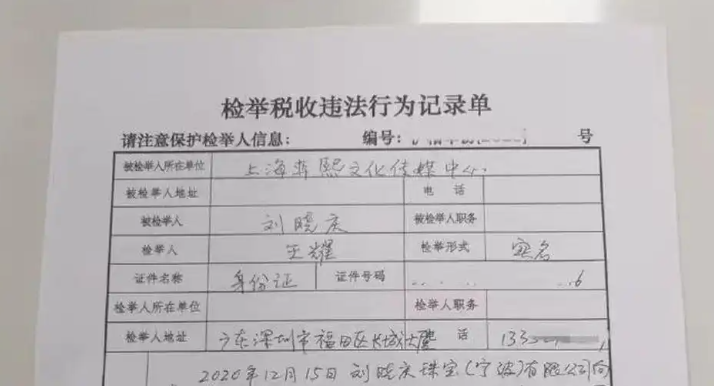 检举税收违法行为记录单
请注意保护检举人信息： 编号： 号
被检举人所在单位 上海 熙文化传媒中心
被检举人地址 电 话
被检举人 刘晓庆 被检举人职务
检举人 王耀 检举形式 实名
证件名称 身份证 证件号码 6
检举人所在单位 检举人职务
检举人地址 广东深圳市福田区长城大厦 电 话 133
2020年12月15日刘晓庆珠宝(宁波)有限公司向